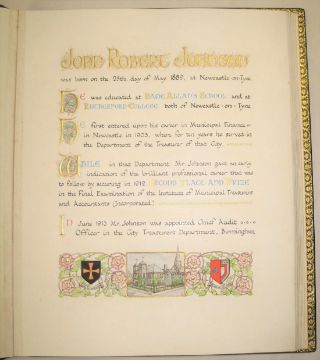 JOHN ROBERT JOHNSON
was born on the 25th day of May 1889, at Newcastle-on-Tyne
HE was educated at DAME ALLAN'S SCHOOL and at
RUTHERFORD COLLEGE both of Newcastle-on-Tyne
HE first entered upon his career in Municipal Finance
in Newcastle in 1903, where for ten years he served in
the Department of the Treasurer of that City.
WHILE in that Department Mr. Johnson gave an early
indication of the brilliant professional career that was
to follow by securing in 1912 SECOND PLACE AND PRIZE
in the Final Examination of the Institute of Municipal Treasurers
and Accountants (Incorporated).
IN June 1913 Mr Johnson was appointed Chief Audit
Officer in the City Treasurer's Department, Birmingham.